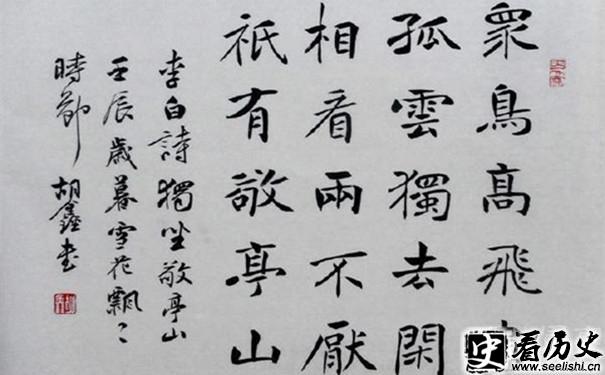 衆鳥高飛
孤雲獨去閑
相看兩不厭
祇有敬亭山
李白詩獨坐敬亭山
壬辰歲暮雪花飄〻
時節 胡鑫书
史 看历史
www.seelishi.cn